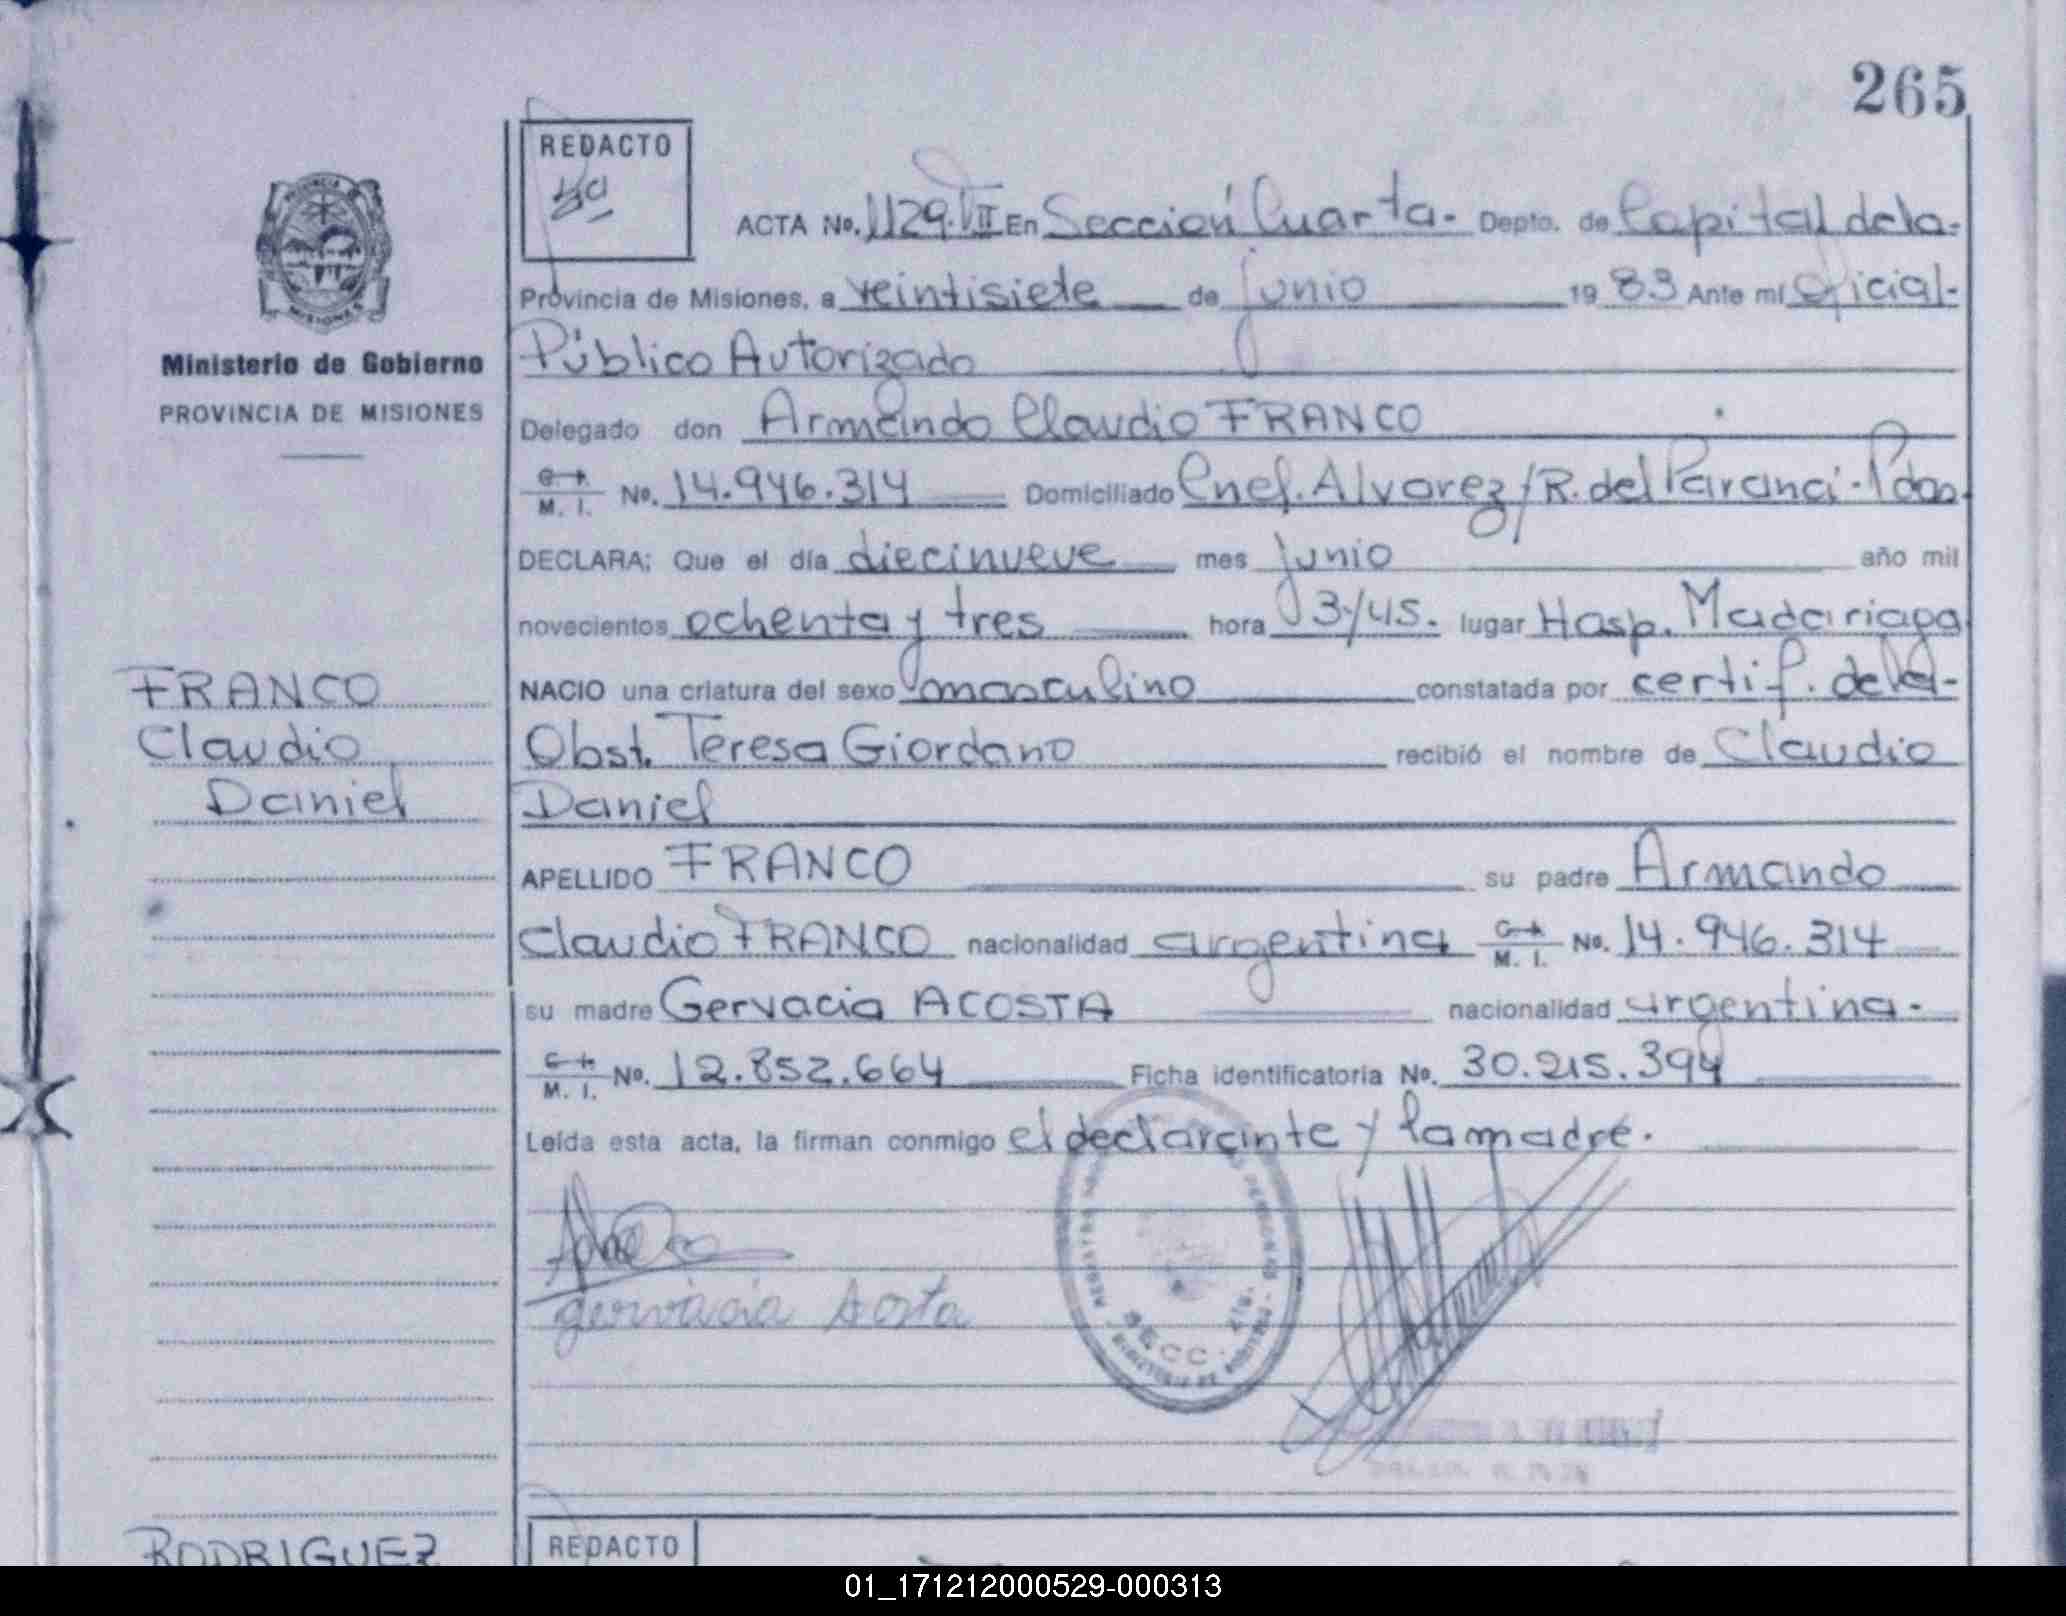 265
REDACTO
ACTA No. 1129. VII En Sección Cuarta.- Depto. de Capital de la-
PROVINCIA DE
MISIONES
Provincia de Misiones, a veintisiete de junio 1983 Ante mí Oficial-
Ministerio de Gobierno
Público Autorizado
PROVINCIA DE MISIONES
Delegado don Armando Claudio FRANCO
C. I. M. I. No. 14.946.314 Domiciliado Cnel. Alvarez/R. del Paraná-Pdas.
DECLARA: Que el día diecinueve mes junio año mil
novecientos ochenta y tres hora 3/45. lugar Hosp. Madariaga
FRANCO
NACIO una criatura del sexo masculino constatada por certif. de la-
Claudio
Obst. Teresa Giordano recibió el nombre de Claudio
Daniel
Daniel
APELLIDO FRANCO su padre Armando
Claudio FRANCO nacionalidad argentina C. I. M. I. No. 14.946.314
su madre Gervacia ACOSTA nacionalidad argentina.-
C. I. M. I. No. 12.852.664 Ficha identificatoria No. 30.215.394
Leída esta acta, la firman conmigo el declarante y la madre.
gervacia Acosta
SECC. 4TA.
RODRIGUEZ
REDACTO
01_171212000529-000313